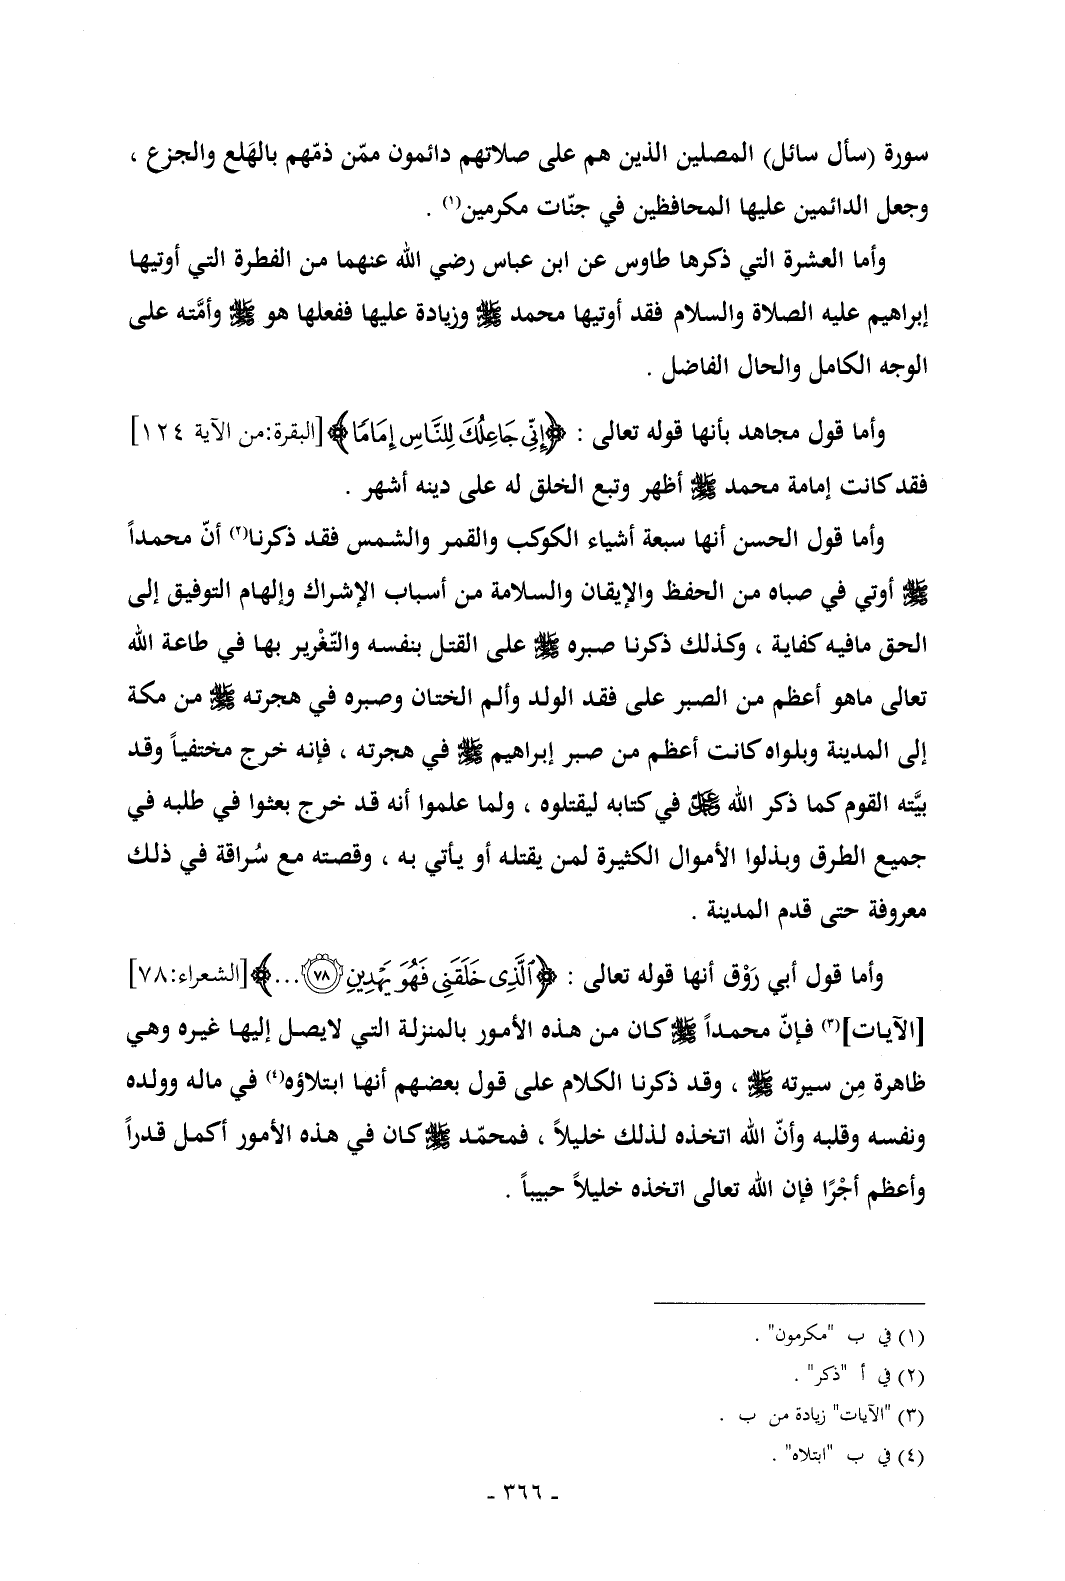 سورة (سأل سائل) المصلين الذين هم على صلاتهم دائمون ممّن ذمّهم بالهَلع والجزع ،
وجعل الدائمين عليها المحافظين في جنّات مكرمين(١) .
وأما العشرة التي ذكرها طاوس عن ابن عباس رضي الله عنهما من الفطرة التي أوتيها
إبراهيم عليه الصلاة والسلام فقد أوتيها محمد ﷺ وزيادة عليها ففعلها هو ﷺ وأمَّته على
الوجه الكامل والحال الفاضل .
وأما قول مجاهد بأنها قوله تعالى : ﴿إِنِّي جَاعِلُكَ لِلنَّاسِ إِمَامًا﴾ [البقرة:من الآية ١٢٤]
فقد كانت إمامة محمد ﷺ أظهر وتبع الخلق له على دينه أشهر .
وأما قول الحسن أنها سبعة أشياء الكوكب والقمر والشمس فقد ذكرنا(٢) أنّ محمداً
ﷺ أوتي في صباه من الحفظ والإيقان والسلامة من أسباب الإشراك وإلهام التوفيق إلى
الحق مافيه كفاية ، وكذلك ذكرنا صبره ﷺ على القتل بنفسه والتّغْرير بها في طاعة الله
تعالى ماهو أعظم من الصبر على فقد الولد وألم الختان وصبره في هجرته ﷺ من مكة
إلى المدينة وبلواه كانت أعظم من صبر إبراهيم ﷺ في هجرته ، فإنه خرج مختفياً وقد
بيَّته القوم كما ذكر الله ﷻ في كتابه ليقتلوه ، ولما علموا أنه قد خرج بعثوا في طلبه في
جميع الطرق وبذلوا الأموال الكثيرة لمن يقتله أو يأتي به ، وقصته مع سُراقة في ذلك
معروفة حتى قدم المدينة .
وأما قول أبي رَوْق أنها قوله تعالى : ﴿ٱلَّذِى خَلَقَنِى فَهُوَ يَهْدِينِ ٧٨ ...﴾ [الشعراء:٧٨]
[الآيات](٣) فإنّ محمداً ﷺ كان من هذه الأمور بالمنزلة التي لايصل إليها غيره وهي
ظاهرة مِن سيرته ﷺ ، وقد ذكرنا الكلام على قول بعضهم أنها ابتلاؤه(٤) في ماله وولده
ونفسه وقلبه وأنّ الله اتخذه لذلك خليلاً ، فمحمّد ﷺ كان في هذه الأمور أكمل قدراً
وأعظم أجْرًا فإن الله تعالى اتخذه خليلاً حبيباً .
(١) في ب "مكرمون" .
(٢) في أ "ذكر" .
(٣) "الآيات" زيادة من ب .
(٤) في ب "ابتلاه" .
- ٣٦٦ -